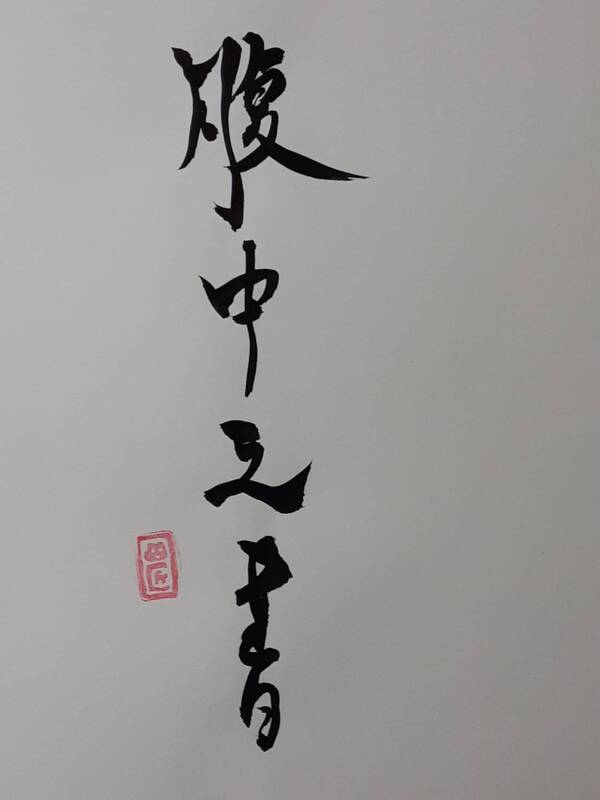 腹中之書